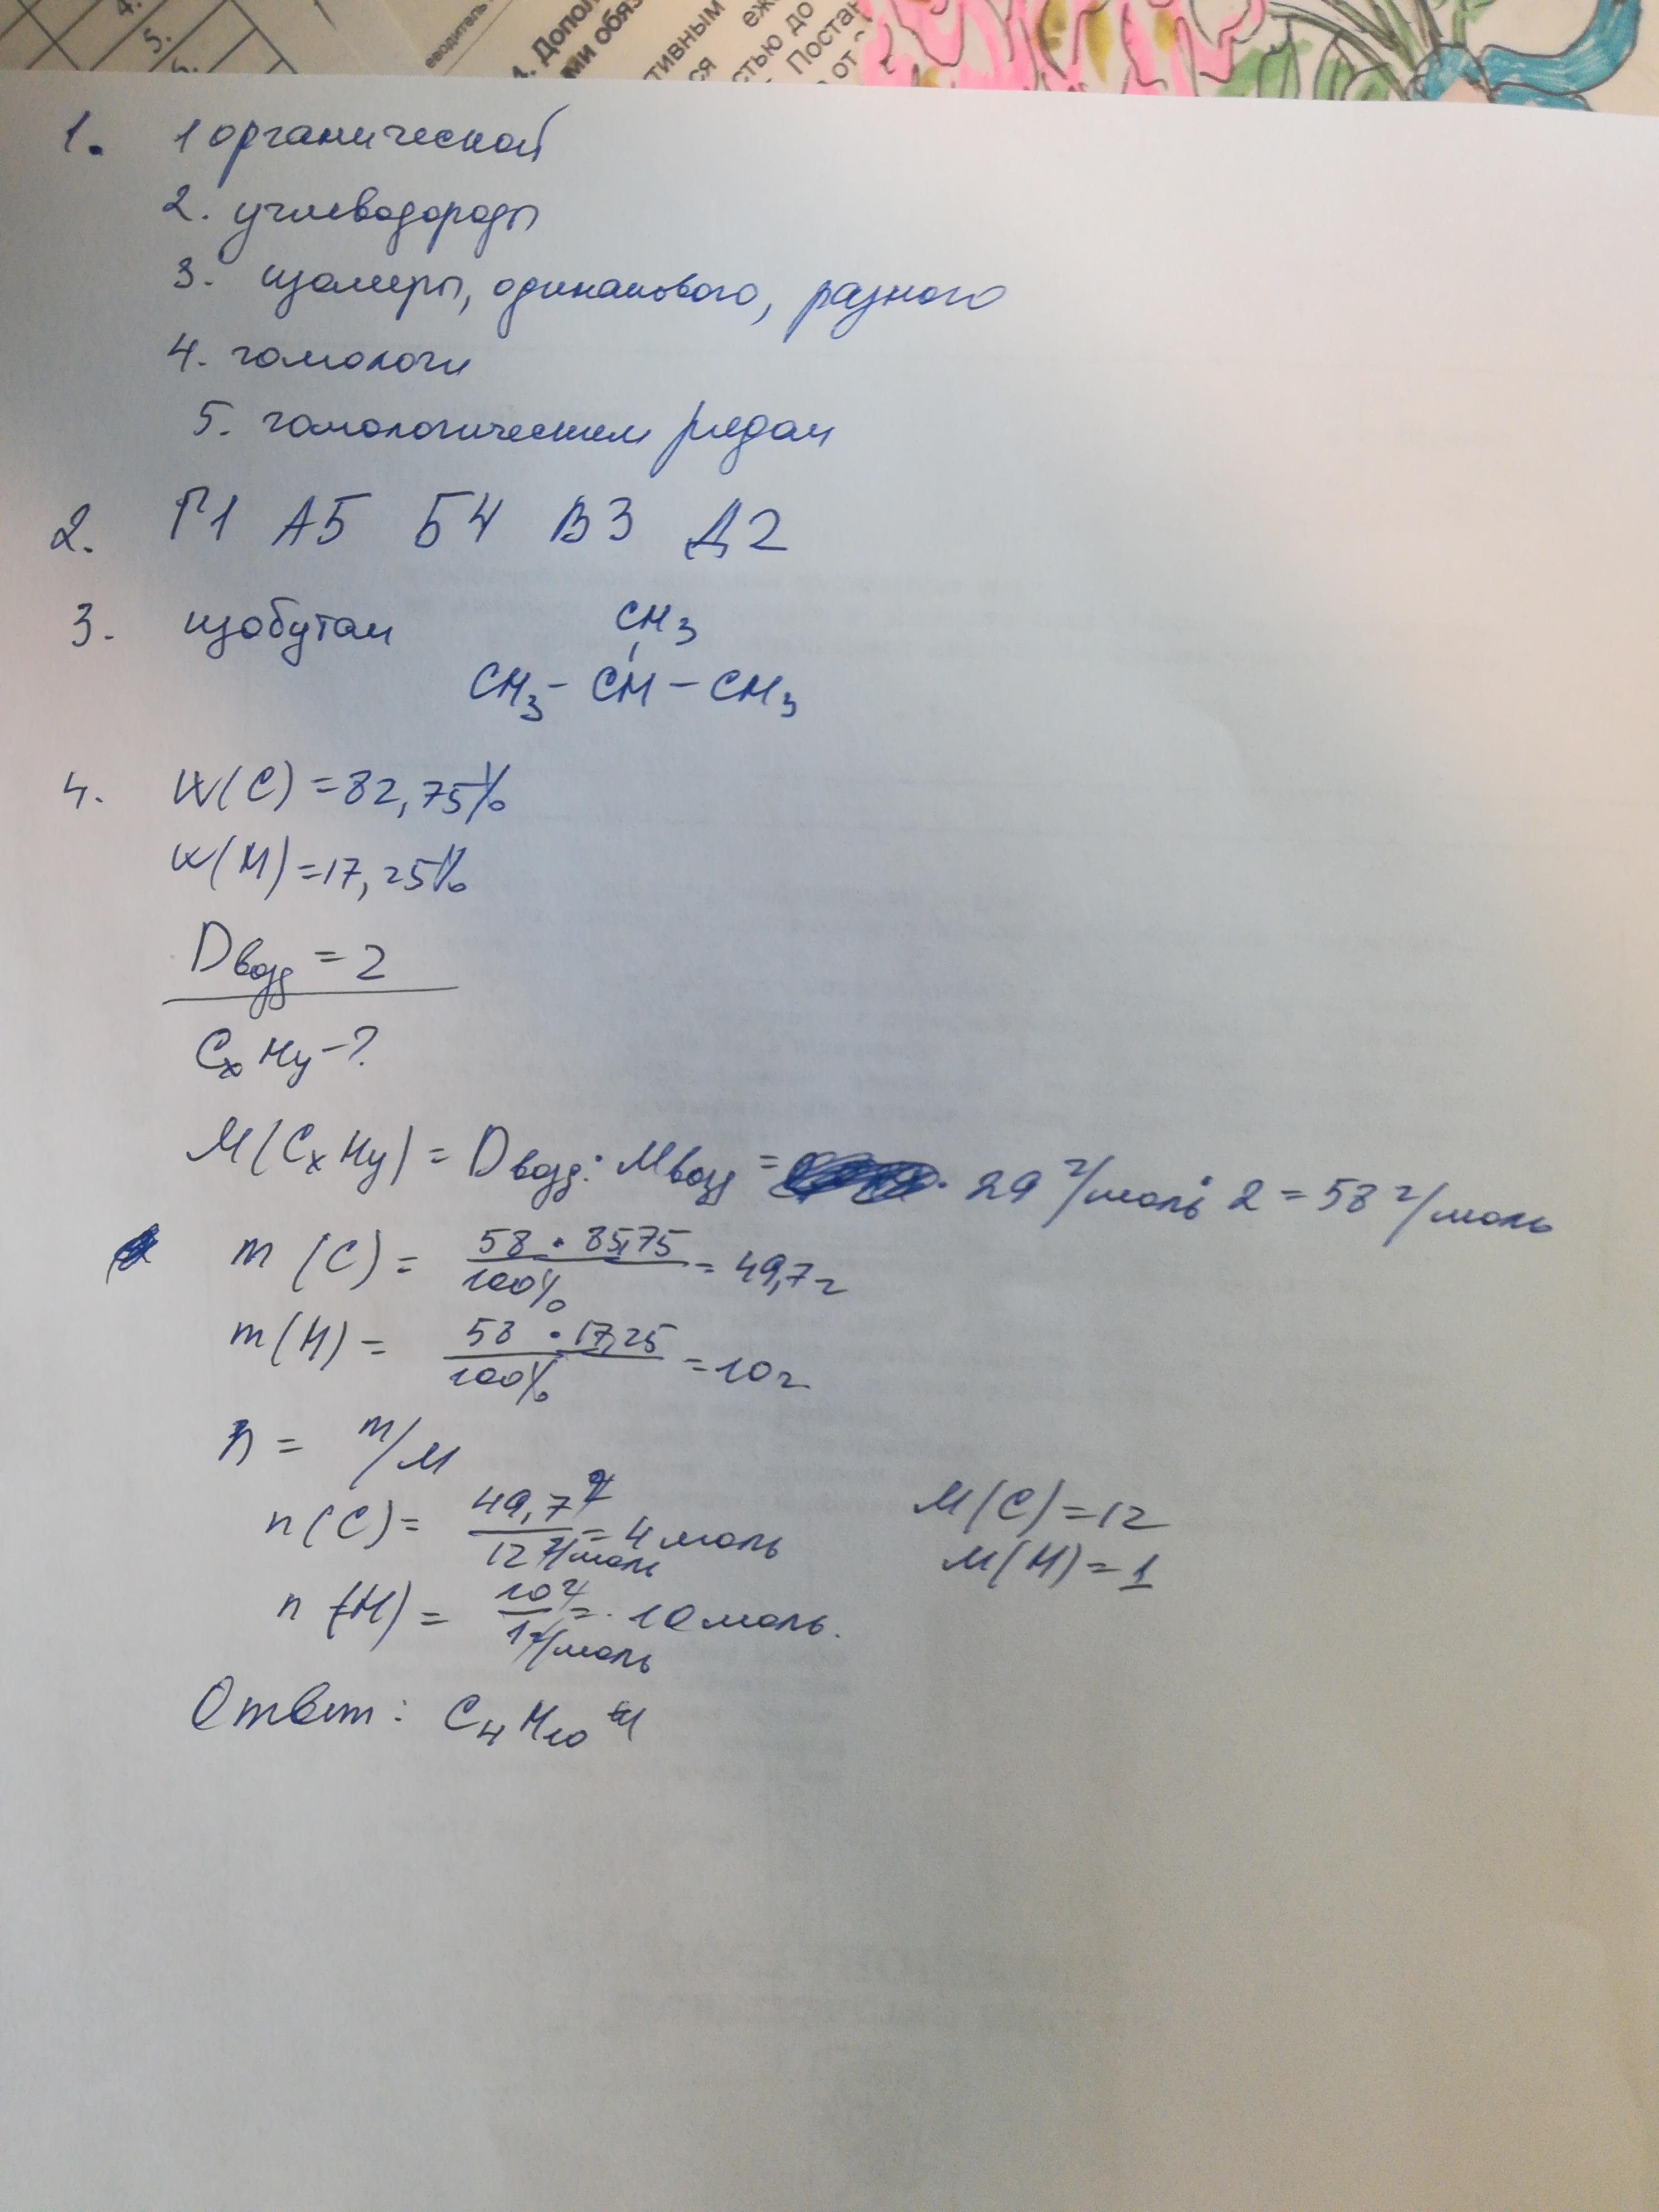 4.
5.
5.
вводитель
4. Допол
ми обяз
тивным
ся
еж
стью до
Постан
от
1. 1 органической
2. углеводороды
3. изомеры, одинакового, разного
4. гомологи
5. гомологическим рядом
2. Г1 А5 Б4 В3 Д2
3. изобутан
CH3
CH3 - CH - CH3
4. W(C) = 82,75%
W(H) = 17,25%
Dвозд = 2
CxHy - ?
M(CxHy) = Dвозд · Mвозд = · 29 г/моль · 2 = 58 г/моль
m(C) = 58 · 85,75 / 100% = 49,7г
m(H) = 58 · 17,25 / 100% = 10г
n = m/M
n(C) = 49,7г / 12 г/моль = 4 моль M(C) = 12
n(H) = 10г / 1 г/моль = 10 моль. M(H) = 1
Ответ: C4H10